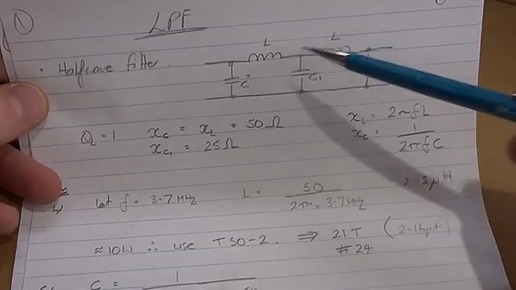 1
LPF
L
L
· Halfwave filter.
C
C1
Q_L = 1 x_c = x_L = 50Ω x_L = 2πfL
x_c1 = 25Ω x_c = 1 / 2πfC
let f = 3.7 MHz L = 50 / 2π × 3.7MHz 2.2μH
≈ 10W ∴ use T50-2. ⇒ 21T (2.16μH)
#24
C = 1